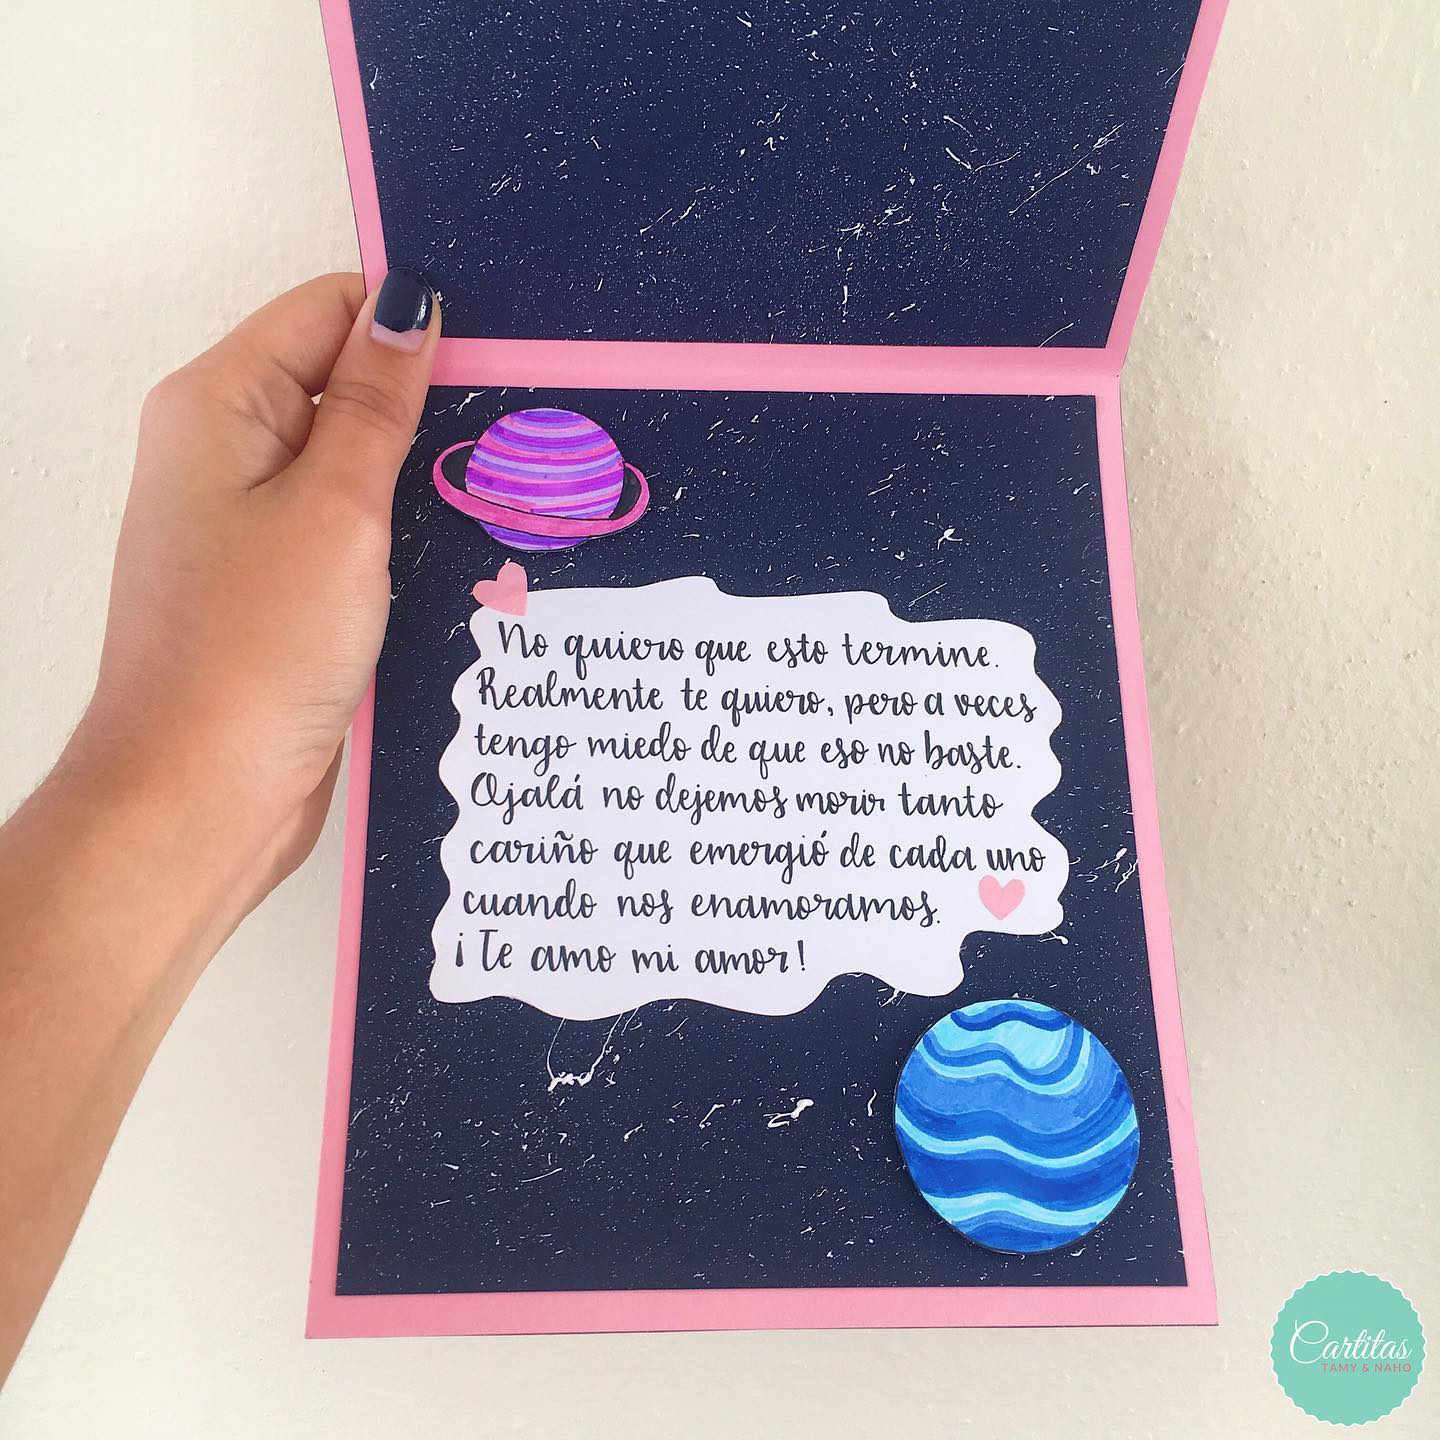 No quiero que esto termine.
Realmente te quiero, pero a veces
tengo miedo de que eso no baste.
Ojalá no dejemos morir tanto
cariño que emergió de cada uno
cuando nos enamoramos.
¡Te amo mi amor!
Cartitas
TAMY & NAHO